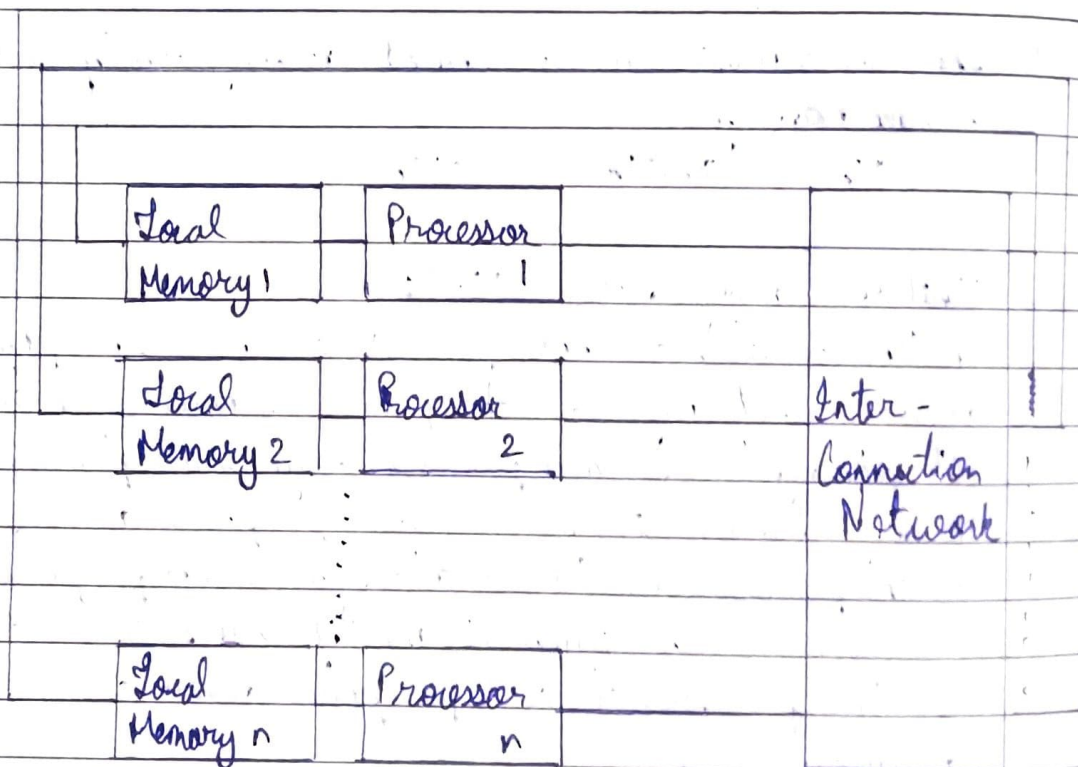 Local
Memory 1
Processor
1
Local
Memory 2
Processor
2
Inter-
Connection
Network
Local
Memory n
Processor
n